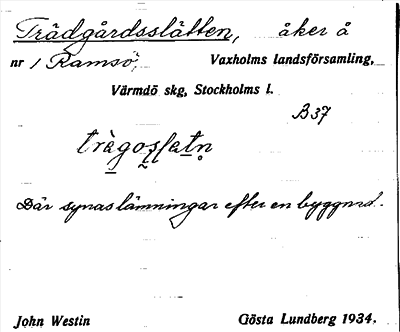 Trädgårdsslätten, åker å
nr 1 Ramsö, Vaxholms landsförsamling,
Värmdö skg, Stockholms l.
B37
trägosḷatn̥
Där synas lämningar efter en byggnad.
John Westin Gösta Lundberg 1934.